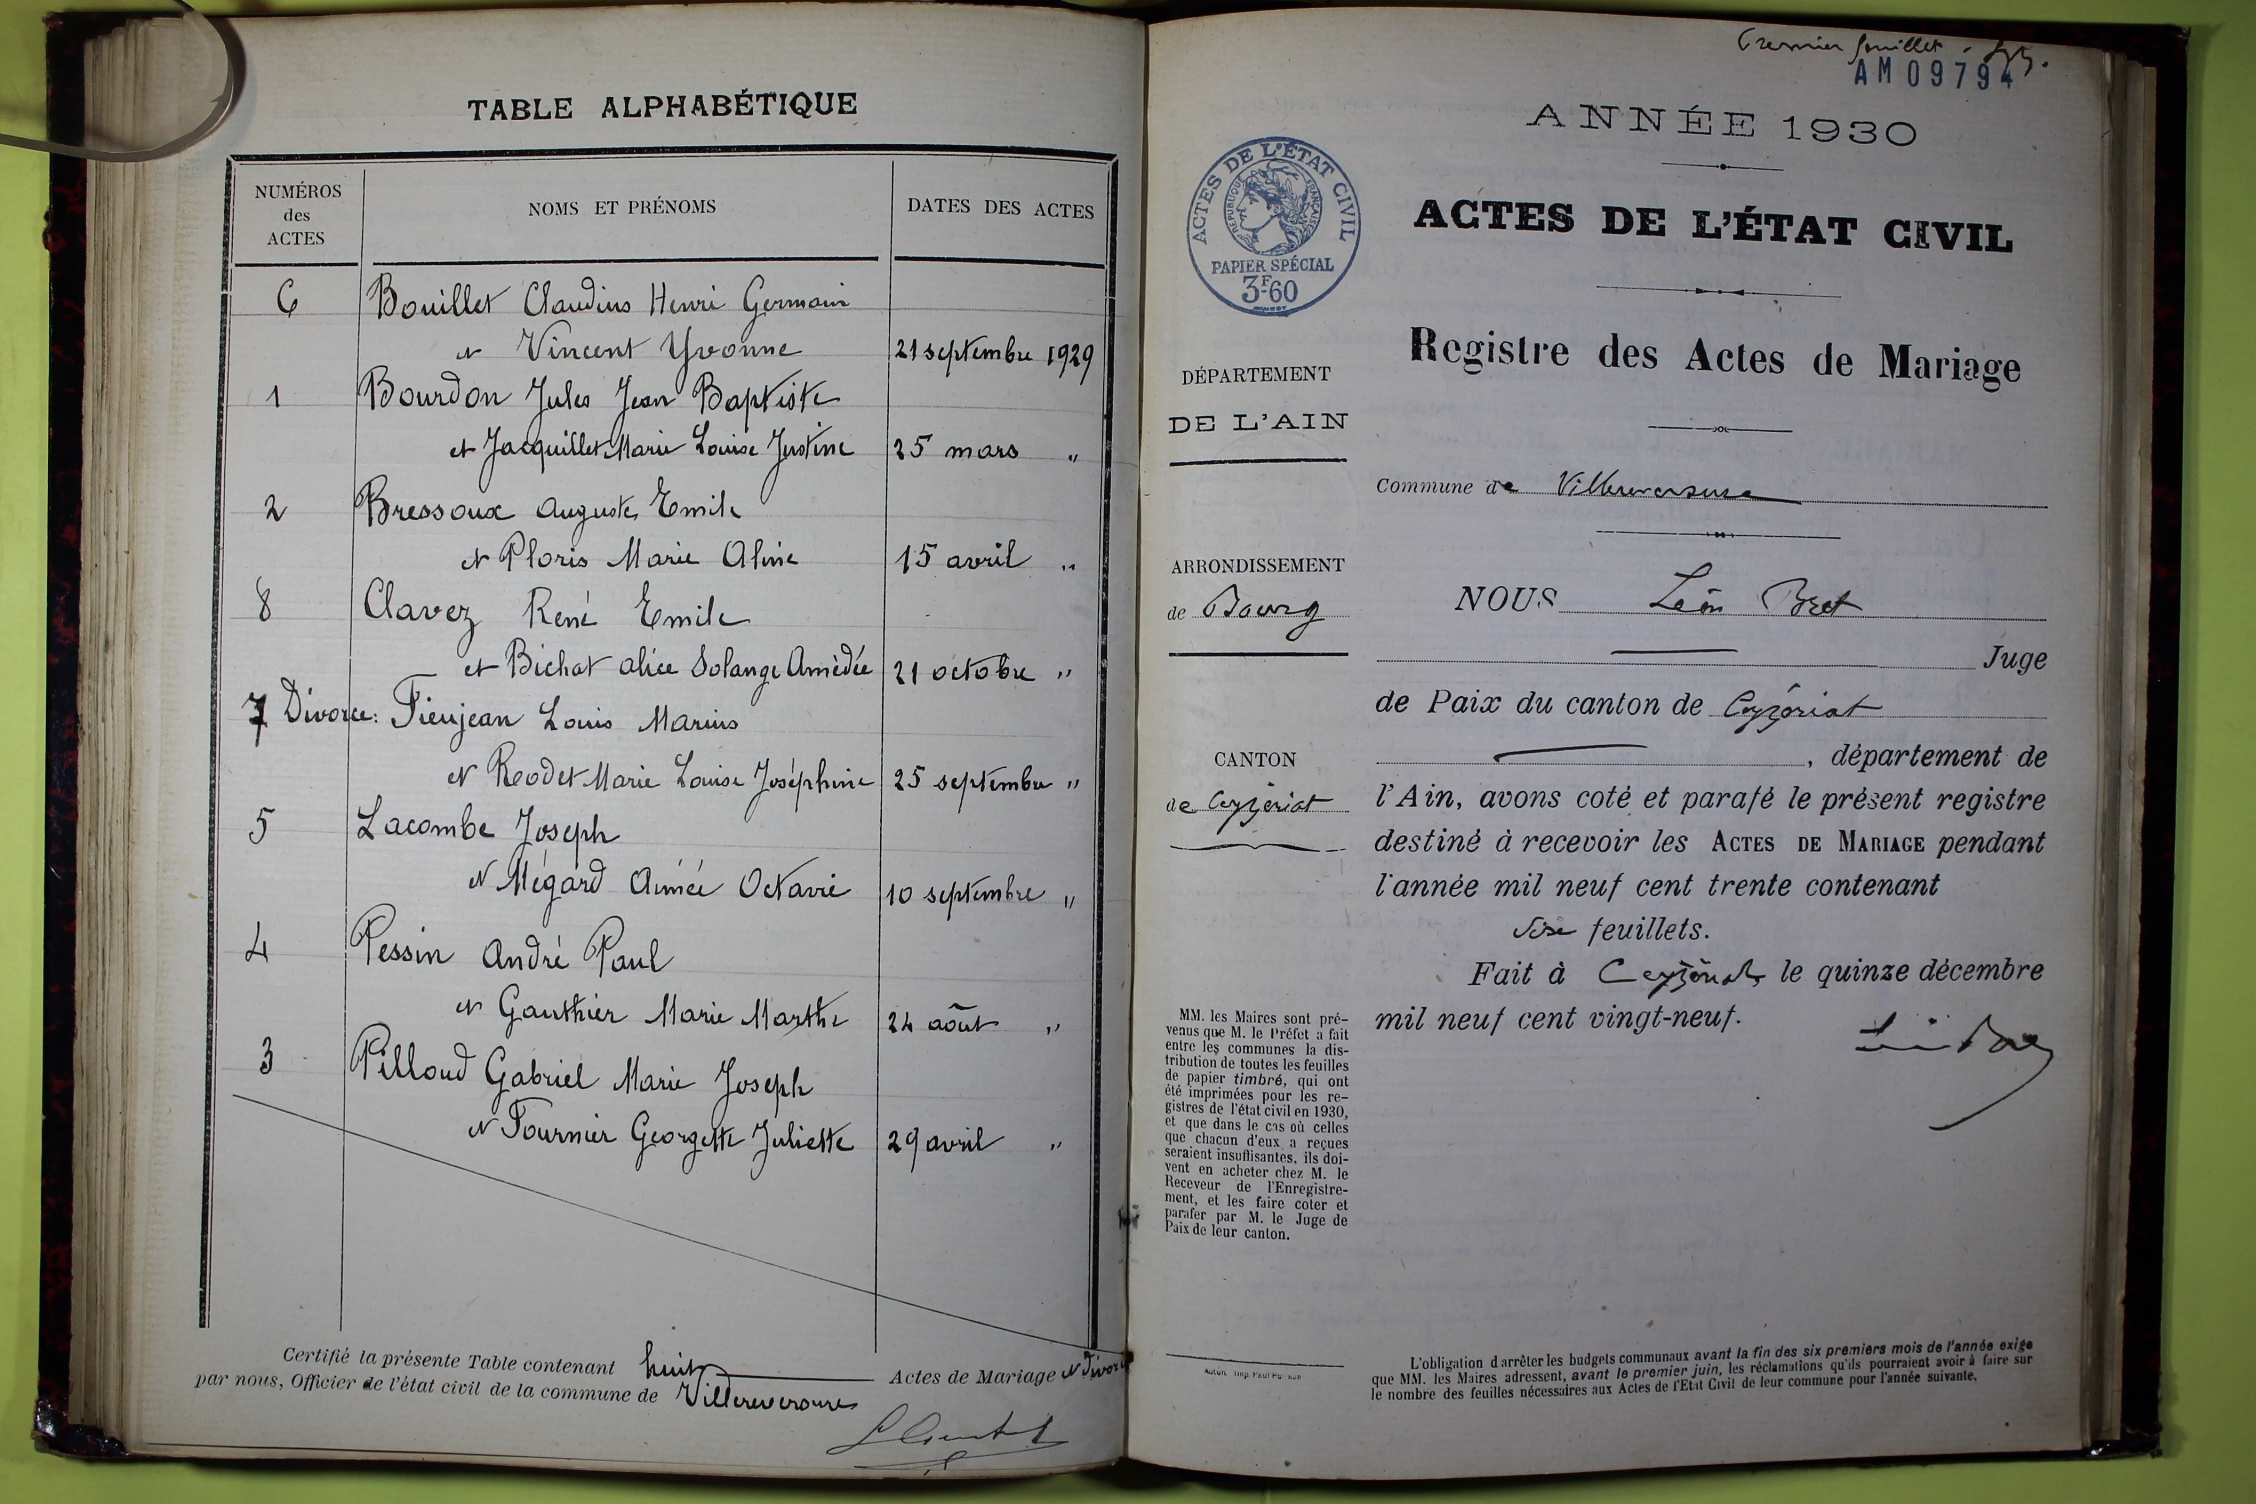 TABLE ALPHABÉTIQUE
NUMÉROS
des
ACTES
NOMS ET PRÉNOMS
DATES DES ACTES
6 Bouillet Claudius Henri Germain
et Vincent Yvonne 21 septembre 1929
1 Bourdon Jules Jean Baptiste
et Jacquillet Marie Louise Justine 25 mars "
2 Bressoux Auguste Emile
et Ploris Marie Aline 15 avril "
8 Clavez René Emile
et Bichat Alice Solange Amédée 21 octobre "
7 Divorce: Fieujean Louis Marius
et Rodet Marie Louise Joséphine 25 septembre "
5 Lacombe Joseph
et Mégard Aimée Octavie 10 septembre "
4 Pessin André Paul
et Gauthier Marie Marthe 24 août "
3 Pilloud Gabriel Marie Joseph
et Fournier Georgette Juliette 29 avril "
Certifié la présente Table contenant huit Actes de Mariage et Divorce
par nous, Officier de l'état civil de la commune de Villereversure
Premier feuillet
AM09794
ANNÉE 1930
ACTES DE L'ÉTAT CIVIL
RÉPUBLIQUE FRANÇAISE
PAPIER SPÉCIAL
3F60
ACTES DE L'ÉTAT CIVIL
Registre des Actes de Mariage
DÉPARTEMENT
DE L'AIN
Commune de Villereversure
ARRONDISSEMENT
de Bourg
NOUS Léon Bret
Juge
de Paix du canton de Ceyzériat
CANTON
de Ceyzériat
, département de
l'Ain, avons coté et parafé le présent registre
destiné à recevoir les ACTES DE MARIAGE pendant
l'année mil neuf cent trente contenant
six feuillets.
Fait à Ceyzériat, le quinze décembre
mil neuf cent vingt-neuf.
MM. les Maires sont pré-
venus que M. le Préfet a fait
entre les communes la dis-
tribution de toutes les feuilles
de papier timbré, qui ont
été imprimées pour les re-
gistres de l'état civil en 1930,
et que dans le cas où celles
que chacun d'eux a reçues
seraient insuffisantes, ils doi-
vent en acheter chez M. le
Receveur de l'Enregistre-
ment, et les faire coter et
parafer par M. le Juge de
Paix de leur canton.
L'obligation d'arrêter les budgets communaux avant la fin des six premiers mois de l'année exige
que MM. les Maires adressent, avant le premier juin, les réclamations qu'ils pourraient avoir à faire sur
le nombre des feuilles nécessaires aux Actes de l'Etat Civil de leur commune pour l'année suivante.